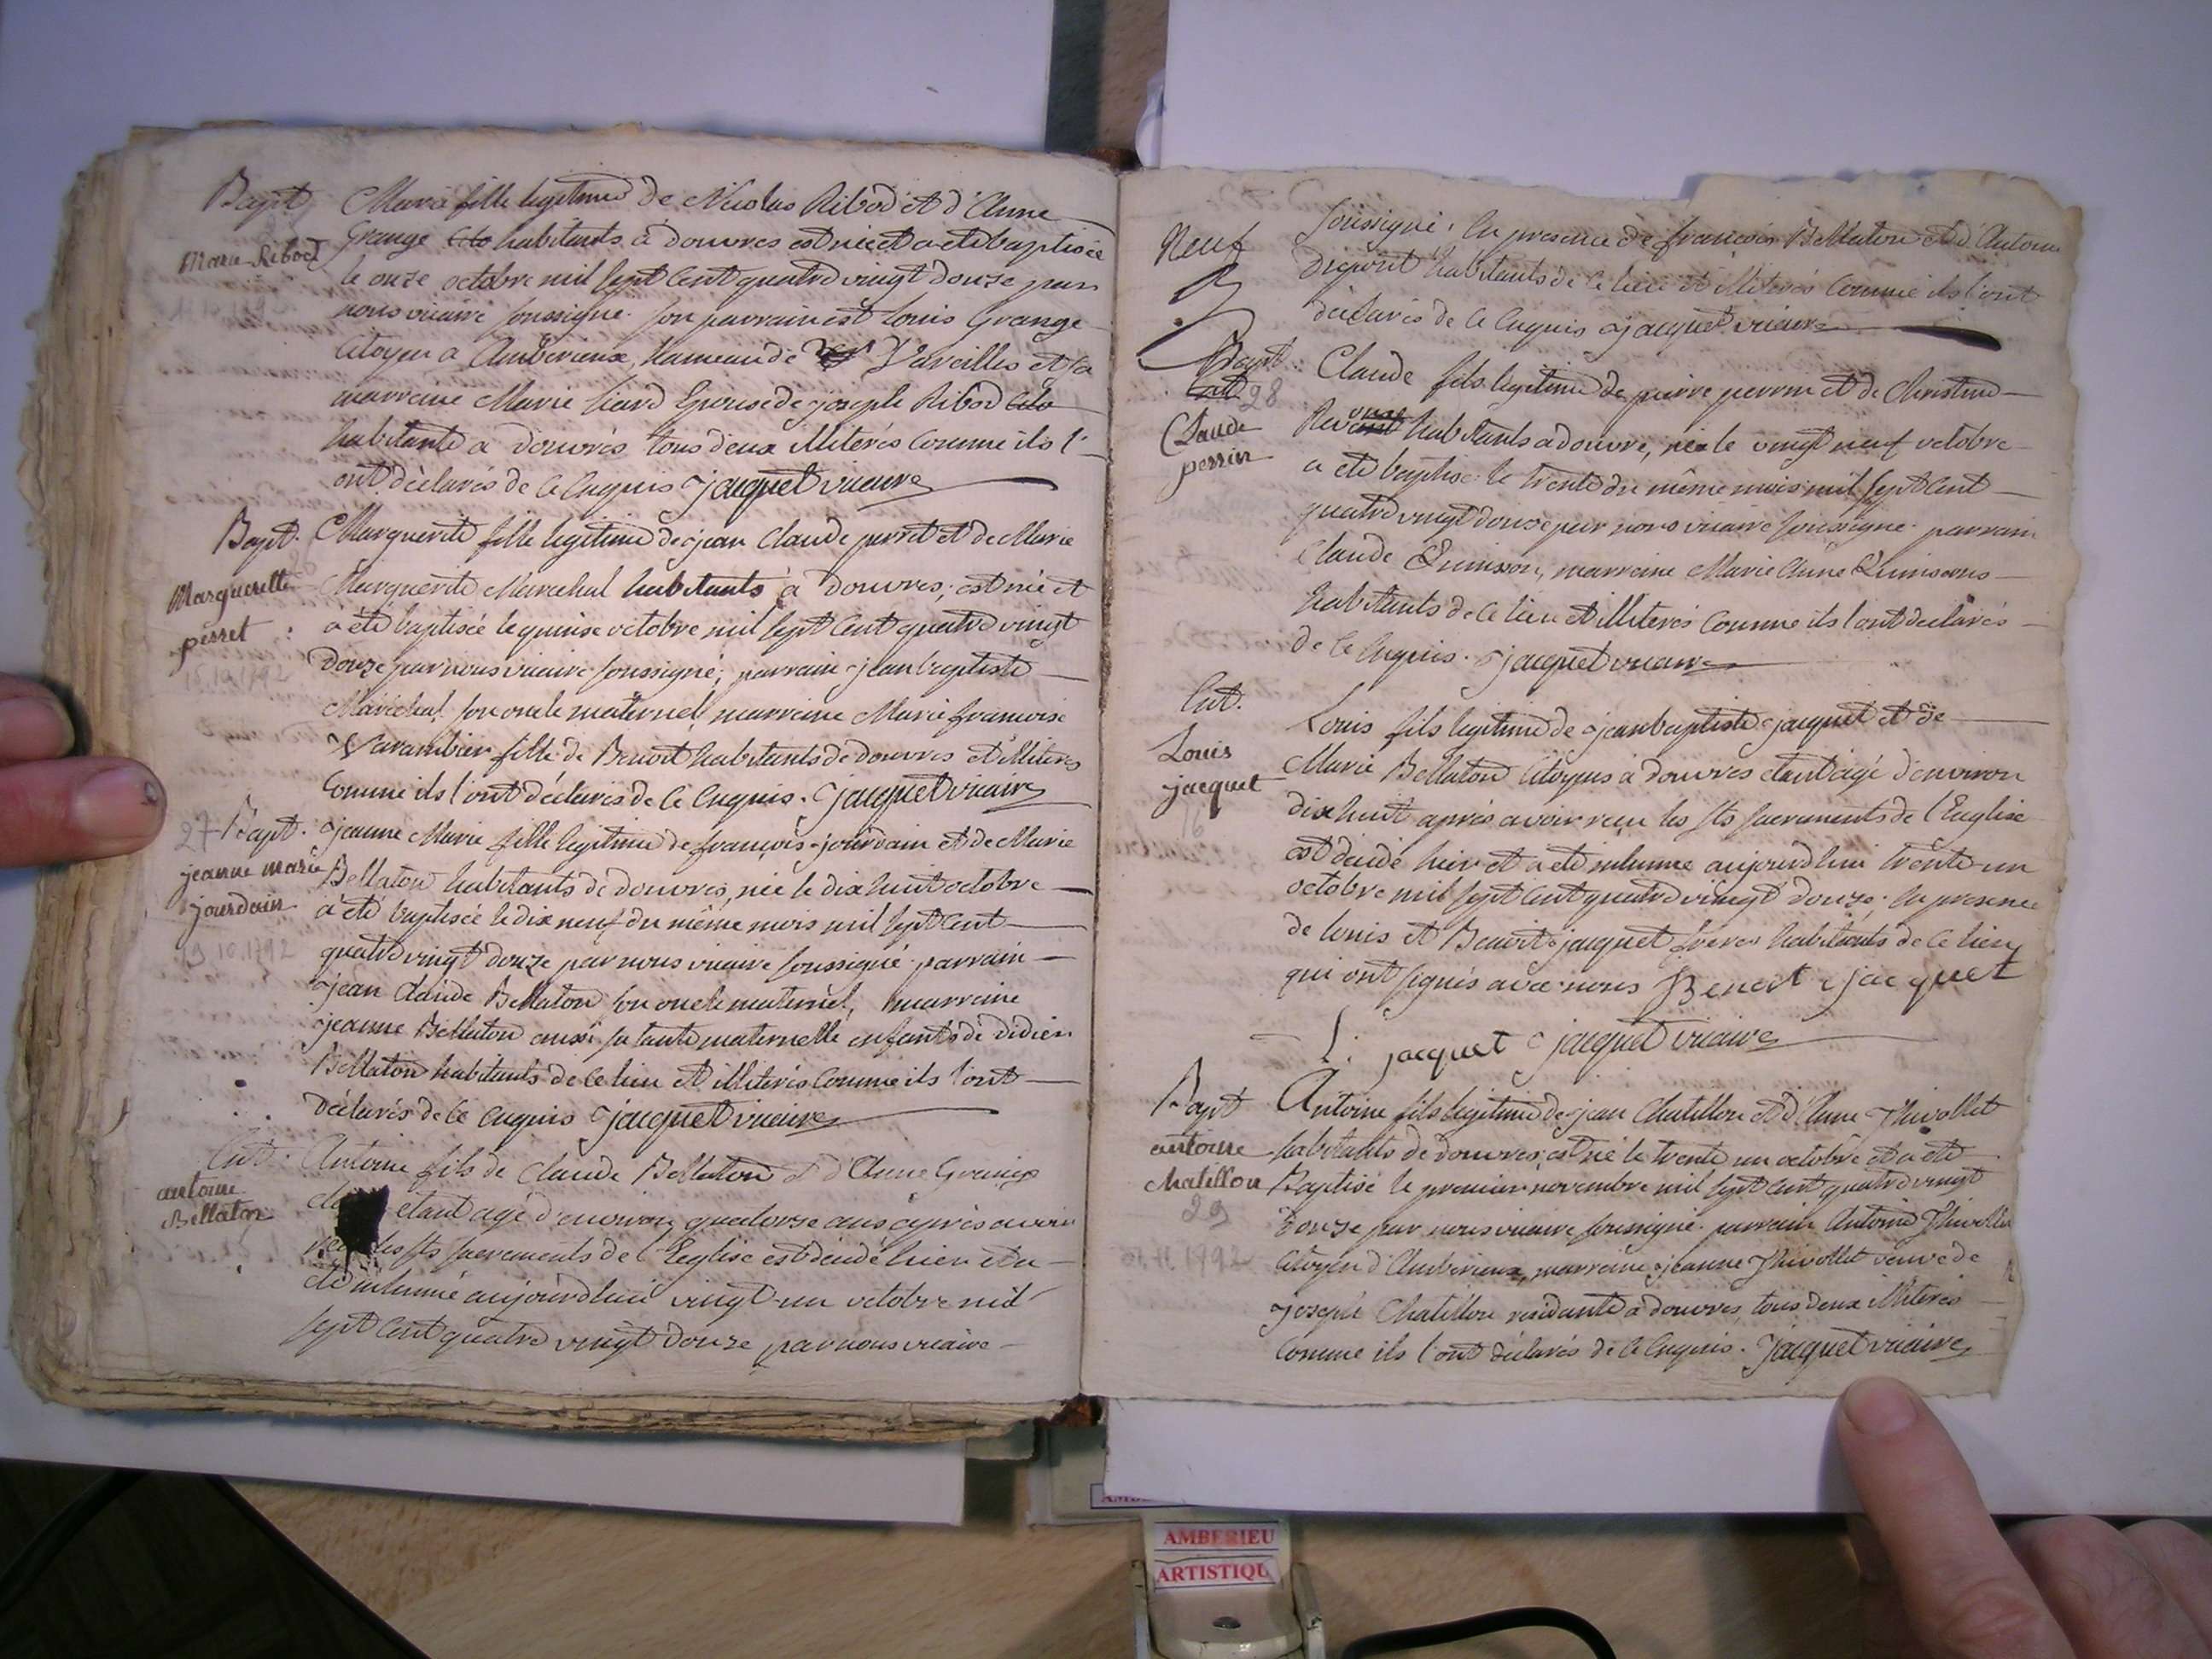 Bapt
Marie Ribod
Marie fille legitime de Nicolas Ribod et d'Anne
Grange habitants à douvres est née et a eté baptisée
le onze octobre mil sept cent quatre vingt douze par
nous vicaire soussigné. son parrain est Louis Grange
citoyen a Amberieux, hameau de Vareilles et la
marraine Marie Liard Epouse de joseph Ribod
habitante a douvres tous deux illiterés comme ils l'
ont déclarés de ce enquis jacquet vicaire
Bapt.
Margueritte
perret
15.10.1792
Marguerite fille legitime de jean Claude perret et de Marie
Marguerite Marechal habitants à douvres; est née et
a eté baptisée le quinse octobre mil sept cent quatre vingt
douze par nous vicaire soussigné; parrain jean baptiste
Maréchal son oncle maternel marraine Marie françoise
Varambier fille de Benoit habitants de douvres et illiterés
comme ils l'ont déclarés de ce enquis. jacquet vicaire
27 Bapt.
jeanne marie
jourdain
19.10.1792
jeanne Marie fille legitime de françois jourdain et de Marie
Bellaton habitants de douvres, née le dix huit octobre
a eté baptisée le dix neuf du même mois mil sept cent
quatre vingt douze par nous vicaire soussigné. parrain
jean Claude Bellaton son oncle maternel, marraine
jeanne Bellaton aussi sa tante maternelle enfants de didier
Bellaton habitants de ce lieu et illiterés comme ils l'ont
déclarés de ce enquis jacquet vicaire
Ent.
antoine
Bellaton
Antoine fils de Claude Bellaton et d'Anne Grange
étant agé d'environ quatorse ans après avoir
les sts sacrements de l'Eglise est décédé hier et a
eté inhumé aujourdhui vingt un octobre mil
sept cent quatre vingt douze par nous vicaire
Neuf
soussigné; en presence de francois Bellaton et d'Antoine
habitants de ce lieu et illiterés comme ils l'ont
déclarés de ce enquis jacquet vicaire
Bapt.
28
Claude
perrin
Claude fils legitime de pierre perrin et de Christine
habitants a douvre, né le vingt neuf octobre
a eté baptisé le trente du même mois mil sept cent
quatre vingt douze par nous vicaire soussigné. parrain
Claude Quinson, marraine Marie Anne Quinsons
habitants de ce lieu et illiterés comme ils l'ont declarés
de ce enquis. jacquet vicaire
Ent.
Louis
jacquet
Louis fils legitime de jean baptiste jacquet et de
Marie Bellaton citoyens à douvres etant agé d'environ
dix huit après avoir reçu les sts sacrements de l'Eglise
est décédé hier et a eté inhumé aujourdhui trente un
octobre mil sept cent quatre vingt douze. en presence
de louis et Benoit jacquet freres habitants de ce lieu
qui ont signés avec nous Benoit jacquet
L. jacquet jacquet vicaire
Bapt
antoine
chatillon
29
Antoine fils legitime de jean Chatillon et d'Anne Thivollet
habitants de douvres; est né le trente un octobre et a eté
Baptisé le premier novembre mil sept cent quatre vingt
douze par nous vicaire soussigné. parrain Antoine Thivollet
citoyen d'Amberieux, marraine jeanne Thivollet veuve de
joseph Chatillon residante à douvres, tous deux illiterés
comme ils l'ont déclarés de ce enquis. jacquet vicaire
AMBERIEU
ARTISTIQU